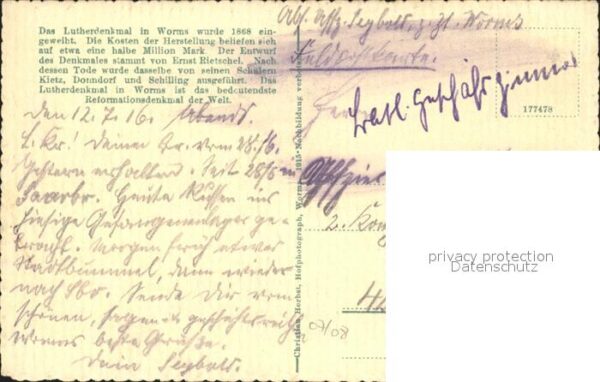 Das Lutherdenkmal in Worms wurde 1868 ein-
geweiht. Die Kosten der Herstellung beliefen sich
auf etwa eine halbe Million Mark. Der Entwurf
des Denkmales stammt von Ernst Rietschel. Nach
dessen Tode wurde dasselbe von seinen Schülern
Kietz, Donndorf und Schilling ausgeführt. Das
Lutherdenkmal in Worms ist das bedeutendste
Reformationsdenkmal der Welt.
den 12.7.16. Abends.
L. Kr! Deinen Br. vom 28./6.
Gestern erhalten. Seit 28/6 in
Saarbr. Heute Russen ins
hiesige Gefangenenlager ge-
bracht. Morgen früh etwas
Stadtbummel, dann wieder
nach Sbr. Sende Dir vom
schönen, sagen- & geschichtsreichen
Worms beste Grüße.
Dein Seybold.
Christian Herbst, Hofphotograph, Worms. 1915. Nachbildung verboten.
Abs. Uffz. Seybold, z. Zt. Worms
Feldpostkarte.
Batl. Geschäftszimmer
177478
2. Kom
07/08
privacy protection
Datenschutz